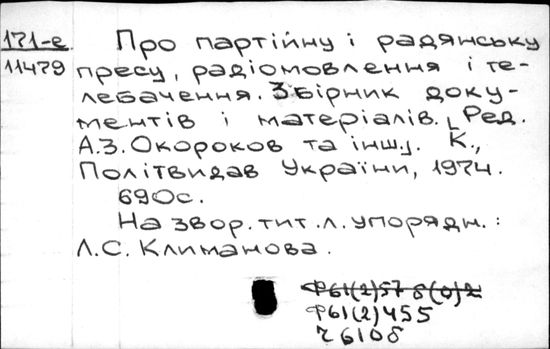 171-е Про партійну і радянську
11479 пресу, радіомовлення і те-
лебачення. Збірник доку-
ментів і матеріалів. [Ред.
А.З. Окороков та інш.]. К.,
Політвидав України, 1974.
690с.
На звор. тит. л. упорядн.:
Л.С. Климанова.
Ф61(2)57 8(0)2
Ф61(2)455